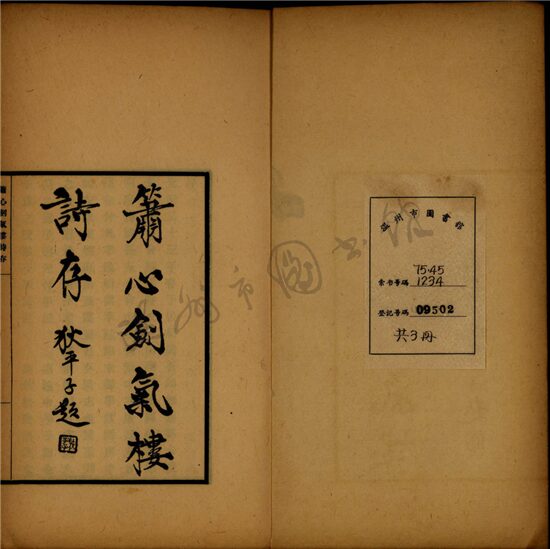 溫州市圖書館
索書号碼 7545
1234
登記号碼 09502
共3冊
簫心劍氣樓
詩存
狄平子題
簫心劍氣樓詩存
溫州市圖書館